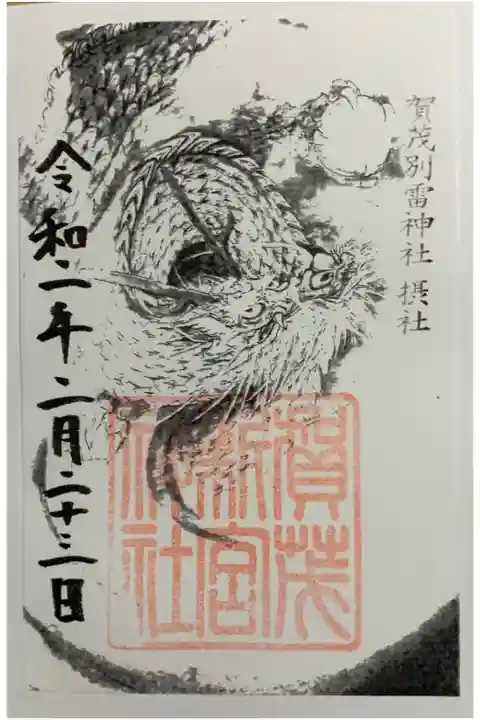 賀茂別雷神社 摂社
賀茂
新宮
神社
令和二年二月二十三日